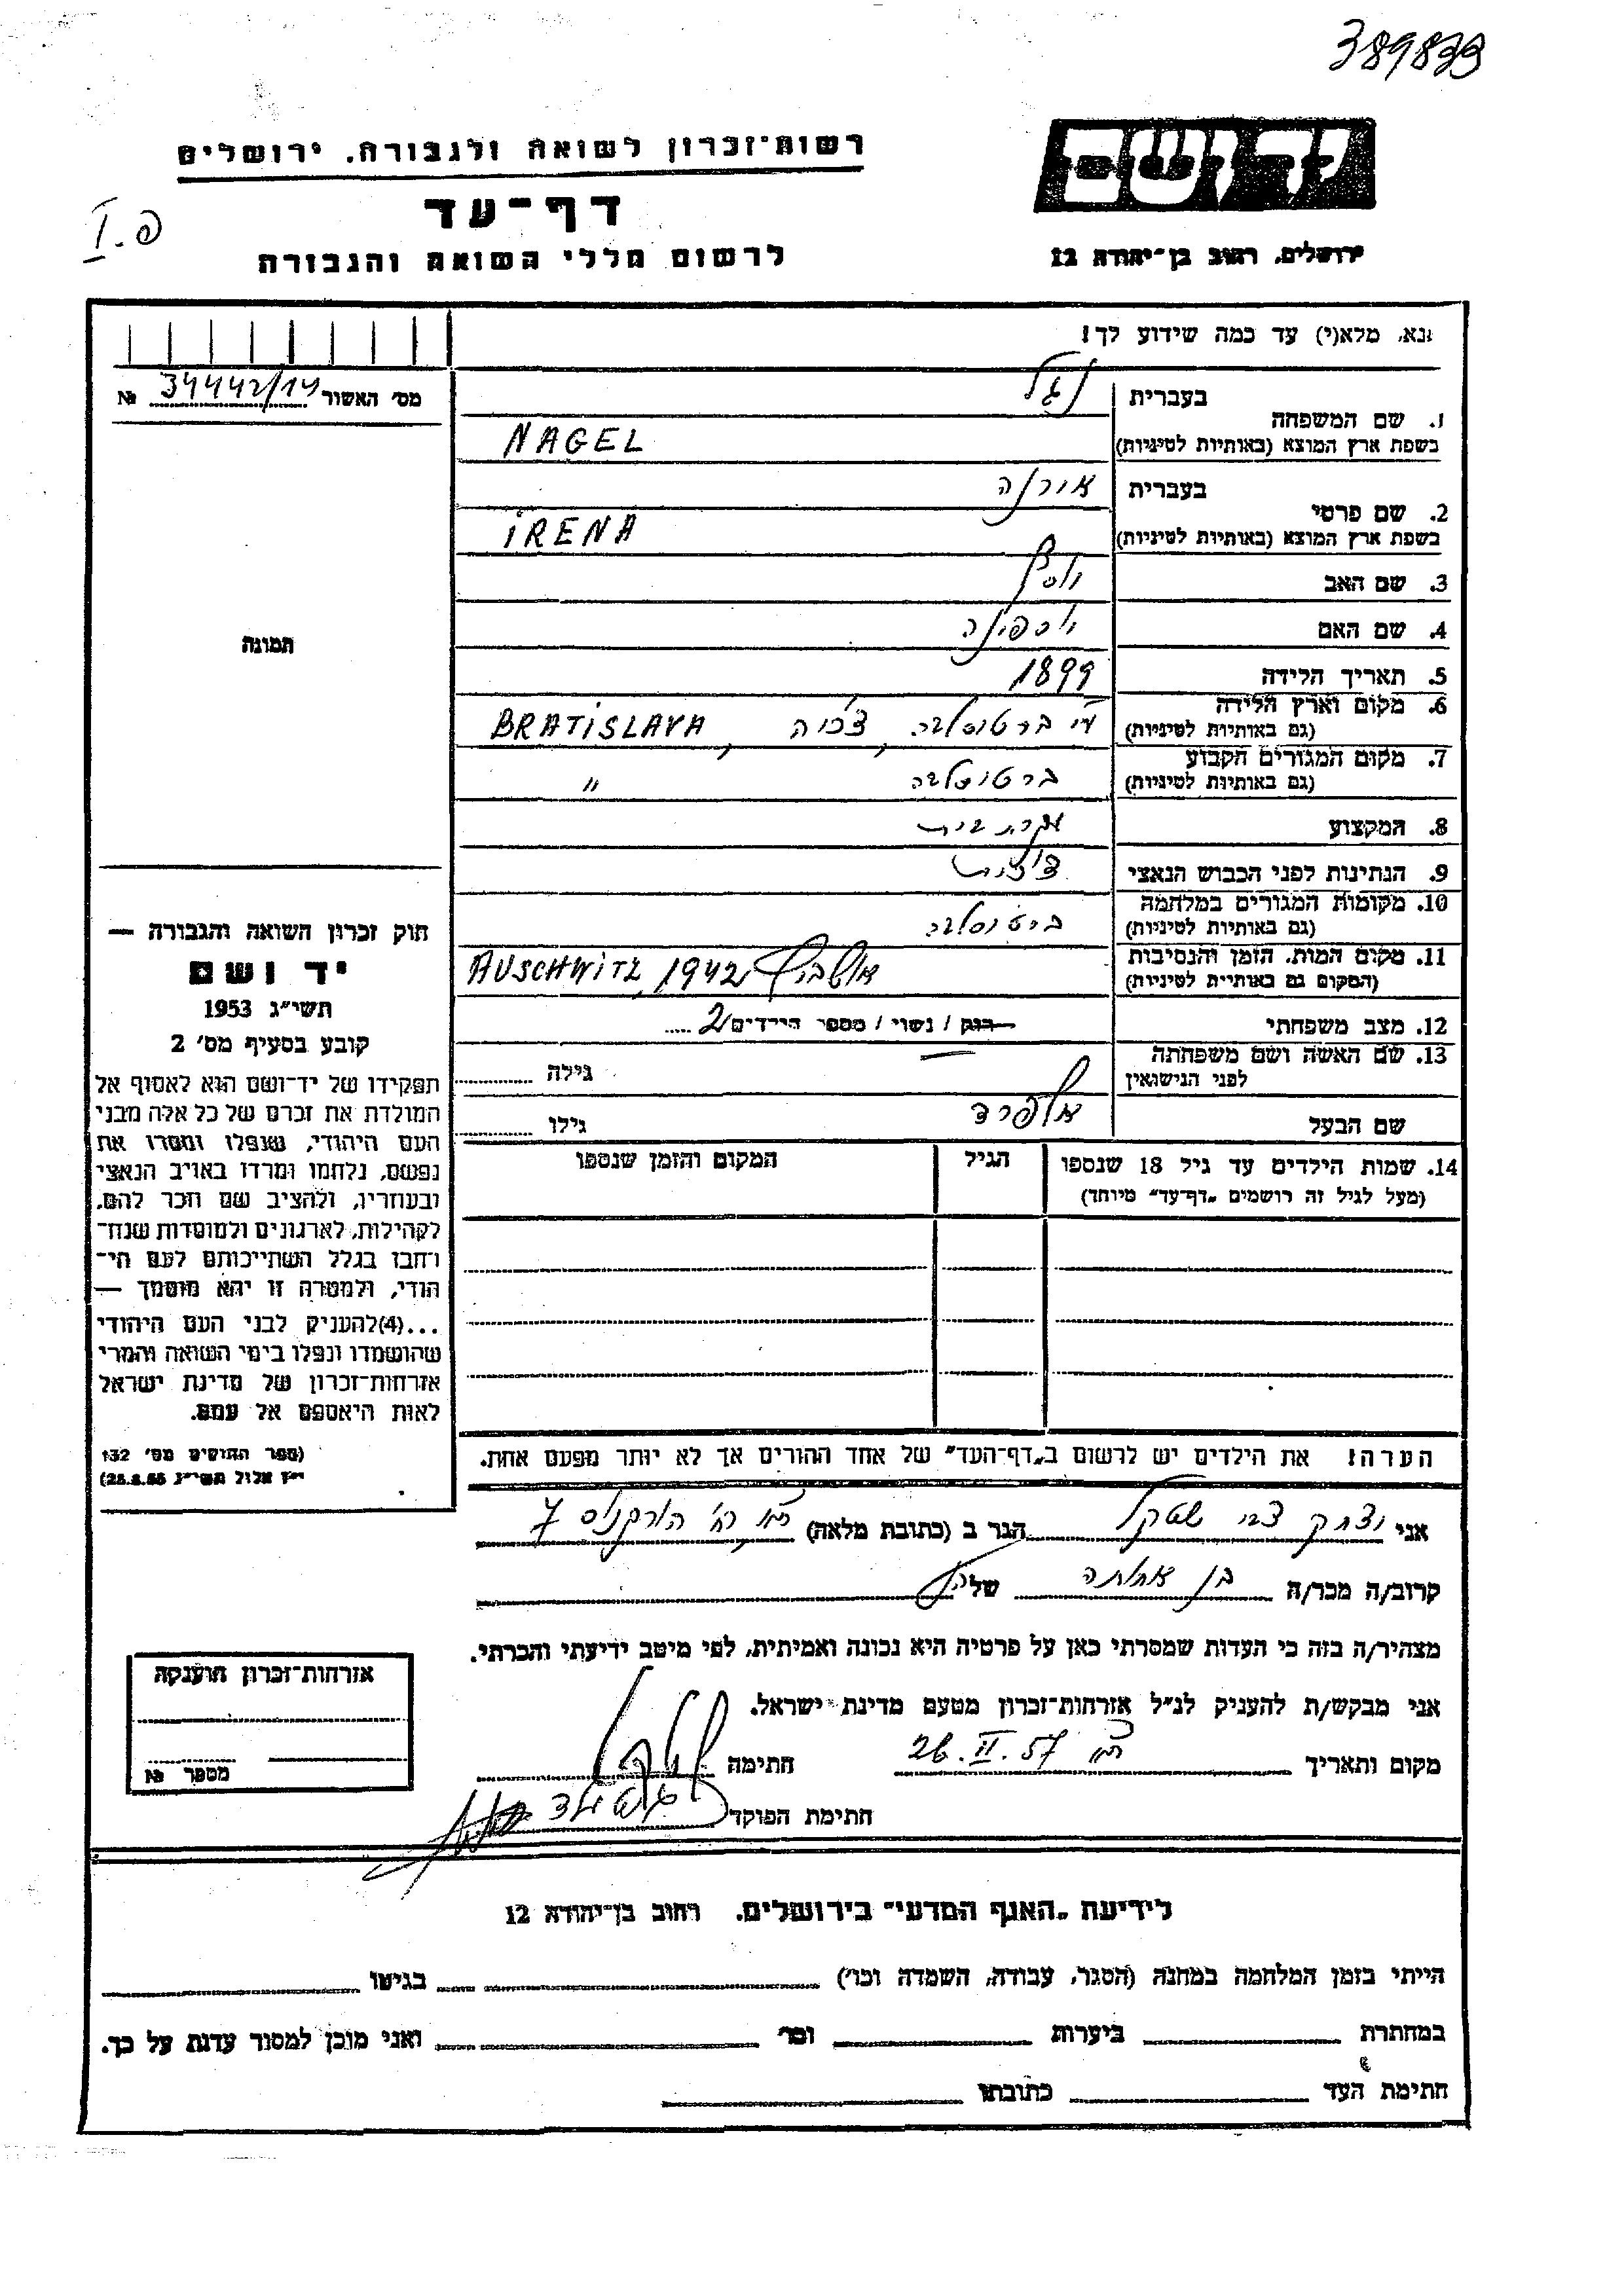 389833
יד ושם
רשות־זכרון לשואה ולגבורה, ירושלים
דף־עד
פ. I
לרשום חללי השואה והגבורה
ירושלים, רחוב בן־יהודה 12
נא, מלא(י) עד כמה שידוע לך!
מס׳ האשור 34442/14 №
1. שם המשפחה
בעברית נגל
בשפת ארץ המוצא (באותיות לטיניות) NAGEL
2. שם פרטי
בעברית אירנה
בשפת ארץ המוצא (באותיות לטיניות) IRENA
3. שם האב
4. שם האם
5. תאריך הלידה 1899
6. מקום וארץ הלידה ברטיסלבה, צ׳כיה, BRATISLAVA
(גם באותיות לטיניות)
7. מקום המגורים הקבוע ברטיסלבה "
(גם באותיות לטיניות)
8. המקצוע עקרת בית
9. הנתינות לפני הכבוש הנאצי צ׳כית
10. מקומות המגורים במלחמה ברטיסלבה
(גם באותיות לטיניות)
11. מקום המות, הזמן והנסיבות אושביץ 1942, AUSCHWITZ
(המקום גם באותיית לטיניות)
12. מצב משפחתי רווק / נשוי / מספר הילדים 2
13. שם האשה ושם משפחתה — גילה
לפני הנישואין
שם הבעל אלפרד גילו
14. שמות הילדים עד גיל 18 שנספו הגיל המקום והזמן שנספו
(מעל לגיל זה רושמים „דף־עד" מיוחד)
הערה! את הילדים יש לרשום ב„דף־העד" של אחד ההורים אך לא יותר מפעם אחת.
תמונה
חוק זכרון השואה והגבורה —
יד ושם
תשי״ג 1953
קובע בסעיף מס׳ 2
תפקידו של יד־ושם הוא לאסוף אל
המולדת את זכרם של כל אלה מבני
העם היהודי, שנפלו ומסרו את
נפשם, נלחמו ומרדו באויב הנאצי
ובעוזריו, ולהציב שם וזכר להם,
לקהילות, לארגונים ולמוסדות שנח־
רחבו בגלל השתייכותם לעם הי־
הודי, ולמטרה זו יהא מוסמך —
...(4)להעניק לבני העם היהודי
שהושמדו ונפלו בימי השואה והמרי
אזרחות־זכרון של מדינת ישראל
לאות היאספם אל עמם.
(ספר החוקים מס׳ 132
י״ז אלול תשי״ג
אני יצחק צבי שטקל הגר ב (כתובת מלאה) רח׳ הורקנוס 7
קרוב/ה מכר/ה בן אחותה של
מצהיר/ה בזה כי העדות שמסרתי כאן על פרטיה היא נכונה ואמיתית, לפי מיטב ידיעתי והכרתי.
אני מבקש/ת להעניק לנ״ל אזרחות־זכרון מטעם מדינת ישראל.
מקום ותאריך 26. II. 57 חתימה
חתימת הפוקד
אזרחות־זכרון הוענקה
מספר №
לידיעת „האגף המדעי" בירושלים, רחוב בן־יהודה 12
הייתי בזמן המלחמה במחנה (הסגר, עבודה, השמדה וכו׳) בגיטו
במחתרת ביערות וכו׳ ואני מוכן למסור עדות על כך.
חתימת העד כתובתו